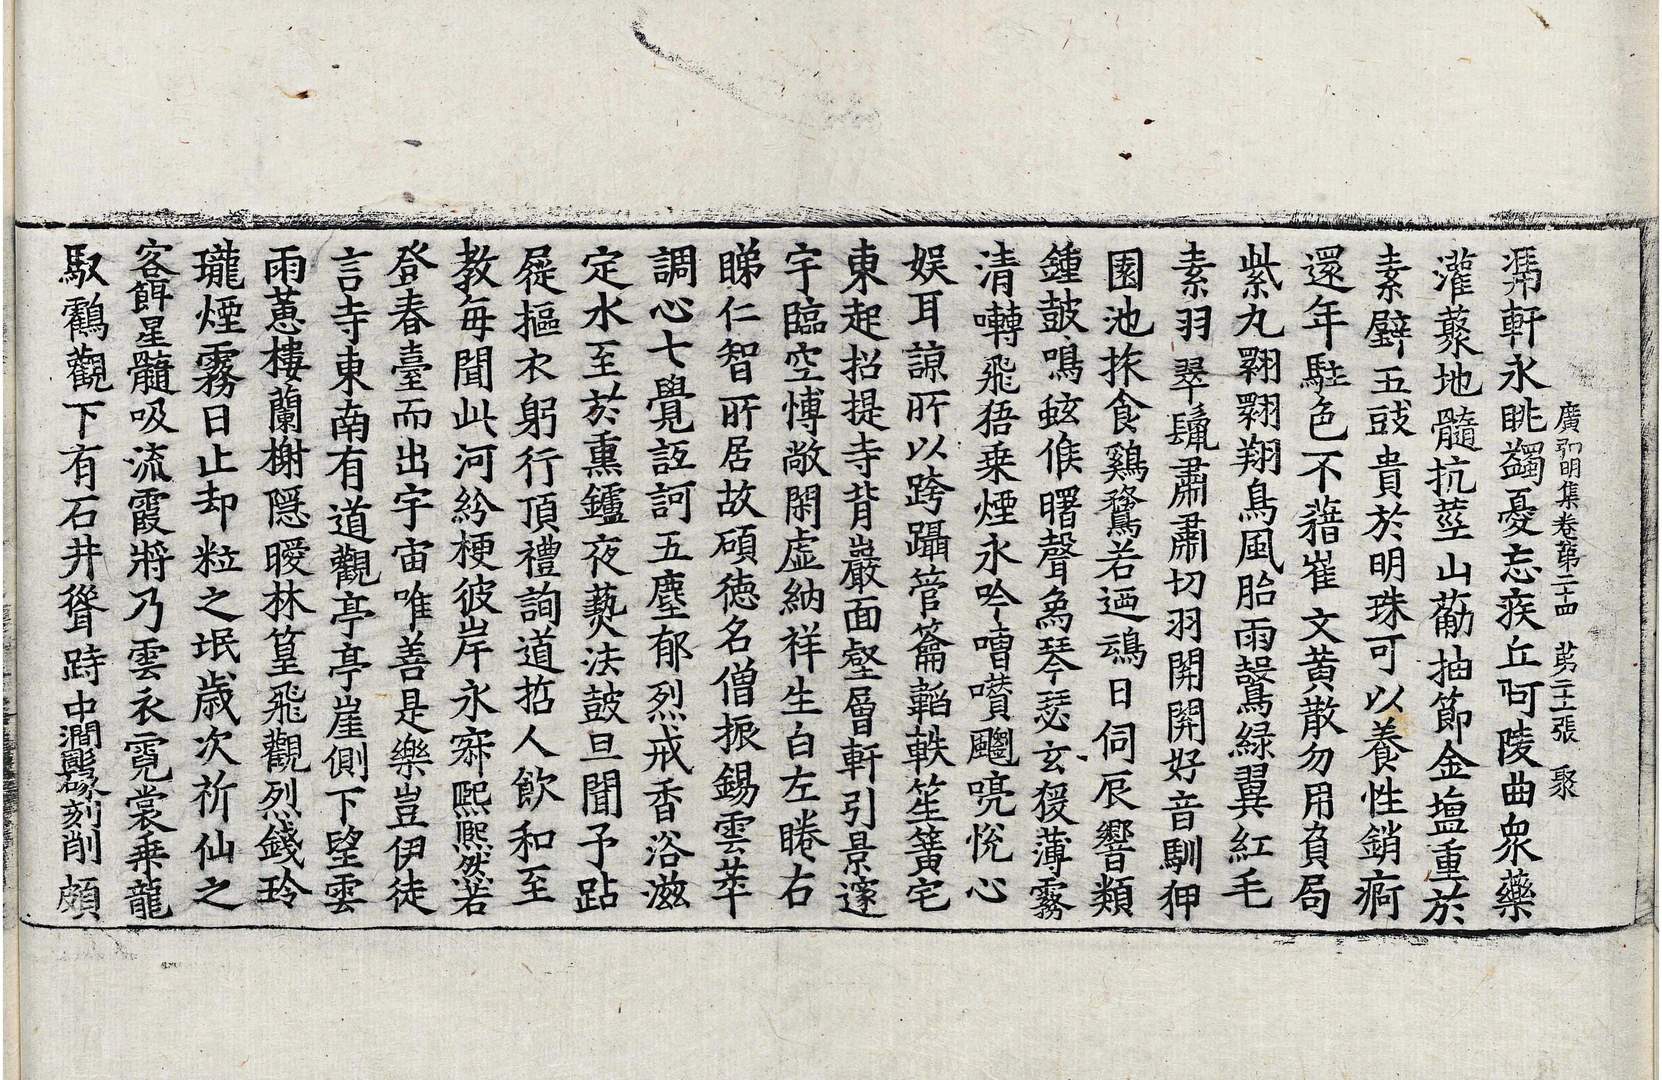 廣弘明集卷第二十四 第二十二張 聚
凴軒永眺蠲憂忘疾丘阿陵曲眾藥
灌藂地髓抗莖山蓈抽節金塩重於
素璧五豉貴於明珠可以養性銷痾
還年駐色不藉崔文黃散勿用負局
紫丸翾翾翔鳥風胎雨鷇綠翼紅毛
素羽翠鬣肅肅切羽關關好音馴狎
園池旅食鷄鶩若迺鴆日伺辰響類
鍾皷鳴蛩候曙聲爲琴瑟玄猨薄霧
清囀飛狖乗煙永吟嘈囋飂亮悅心
娛耳諒所以跨躡管籥韜軼笙簧宅
東起招提寺背巖面壑層軒引景邃
宇臨空博敞閑虛納祥生白左睠右
睇仁智所居故碩德名僧振錫雲萃
調心七覺詆訶五塵郁烈戒香浴滋
定水至於熏鑪夜爇法皷旦聞予跕
屣摳衣躬行頂禮詢道哲人飲和至
教每聞此河紛梗彼岸永寂熙熙然若
登春臺而出宇宙唯善是樂豈伊徒
言寺東南有道觀亭亭崖側下望雲
雨蕙樓蘭榭隱曖林篁飛觀烈錢玲
瓏煙霧日止却粒之氓歲次祈仙之
客餌星髓吸流霞將乃雲衣霓裳乗龍
馭鶴觀下有石井聳跱中澗雕琢刻削頗